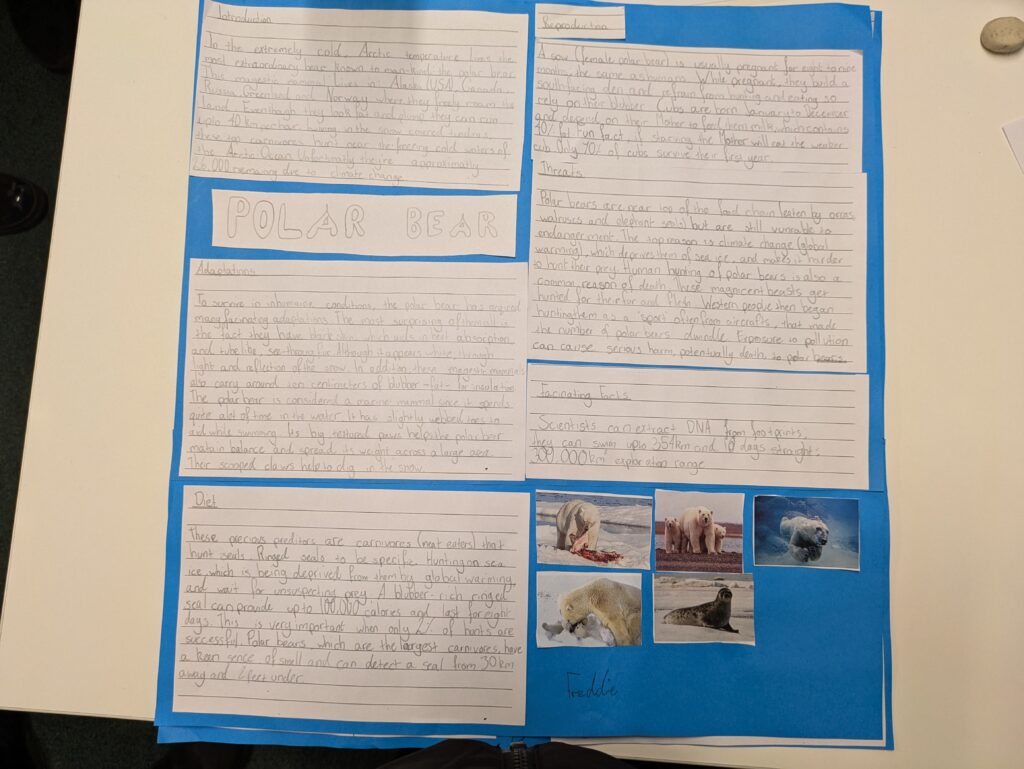 Introduction
In the extremely cold, Arctic temperature lives the
most extraordinary bear known to man-kind the polar bear.
This majestic mammal lives in Alaska (USA), Canada,
Russia, Greenland and Norway where they freely roam the
land. Eventhough they look fat and plump they can run
upto 40 km per hour. Living in the snow covered tundras,
these top carnivores hunt near the freezing cold waters of
the Arctic Ocean. Unfortunatly theyre approximatly
26,000 remaining due to climate change.
POLAR BEAR
Adaptations
To survive in inhumane conditions, the polar bear has acquired
many facinating adaptations. The most surprising of them all is
the fact they have black skin, which aids in heat absorption,
and tube like, see-through fur. Although it appears white, through
light and reflection of the snow. In addition, these magestic mamals
also carry around ten centimeters of blubber -fat- for insulation.
The polar bear is considered a marine mammal since it spends
quite alot of time in the water. It has slightly webbed toes to
aid while swimming. Its big textured paws helps the polar bear
matain balance and spread its weight across a large area.
Their scooped claws help to dig in the snow.
Diet
These precious preditors are carnivores (meat eaters) that
hunt seals. Ringed seals to be specific. Hunting on sea
ice, which is being deprived from them by global warming,
and wait for unsuspecting prey. A blubber-rich ringed
seal can provide up to 100,000 calories and last for eight
days. This is very important when only 2% of hunts are
successful. Polar bears, which are the largest carnivores, have
a keen sence of smell and can detect a seal from 30 km
away and 6 feet under.
Reproduction
A sow (female polar bear) is usually pregnant for eight to nine
months, the same as humans. While pregnant, they build a
south facing den and refrain from hunting and eating so
rely on their blubber. Cubs are born January to December
and depend on their Mother to feed them milk, which contains
40% fat. Fun fact, if starving the Mother will eat the weaker
cub. Only 70% of cubs survive their first year.
Threats
Polar bears are near top of the food chain (eaten by orcas,
walruses and elephant seals) but are still vunrable to
endangerment. The top reason is climate change (global
warming), which deprives them of sea ice, and makes it harder
to hunt their prey. Human hunting of polar bears is also a
common reason of death. These magnicent beasts get
hunted for their fur and flesh. Western people then began
hunting them as a 'sport' often from aircrafts, that made
the number of polar bears dwindle. Exposure to pollution
can cause serious harm, potentially death, to polar bears.
Facinating Facts
Scientists can extract DNA from footprints,
they can swim upto 354km and 10 days straight:
300,000km² exploration range
Freddie